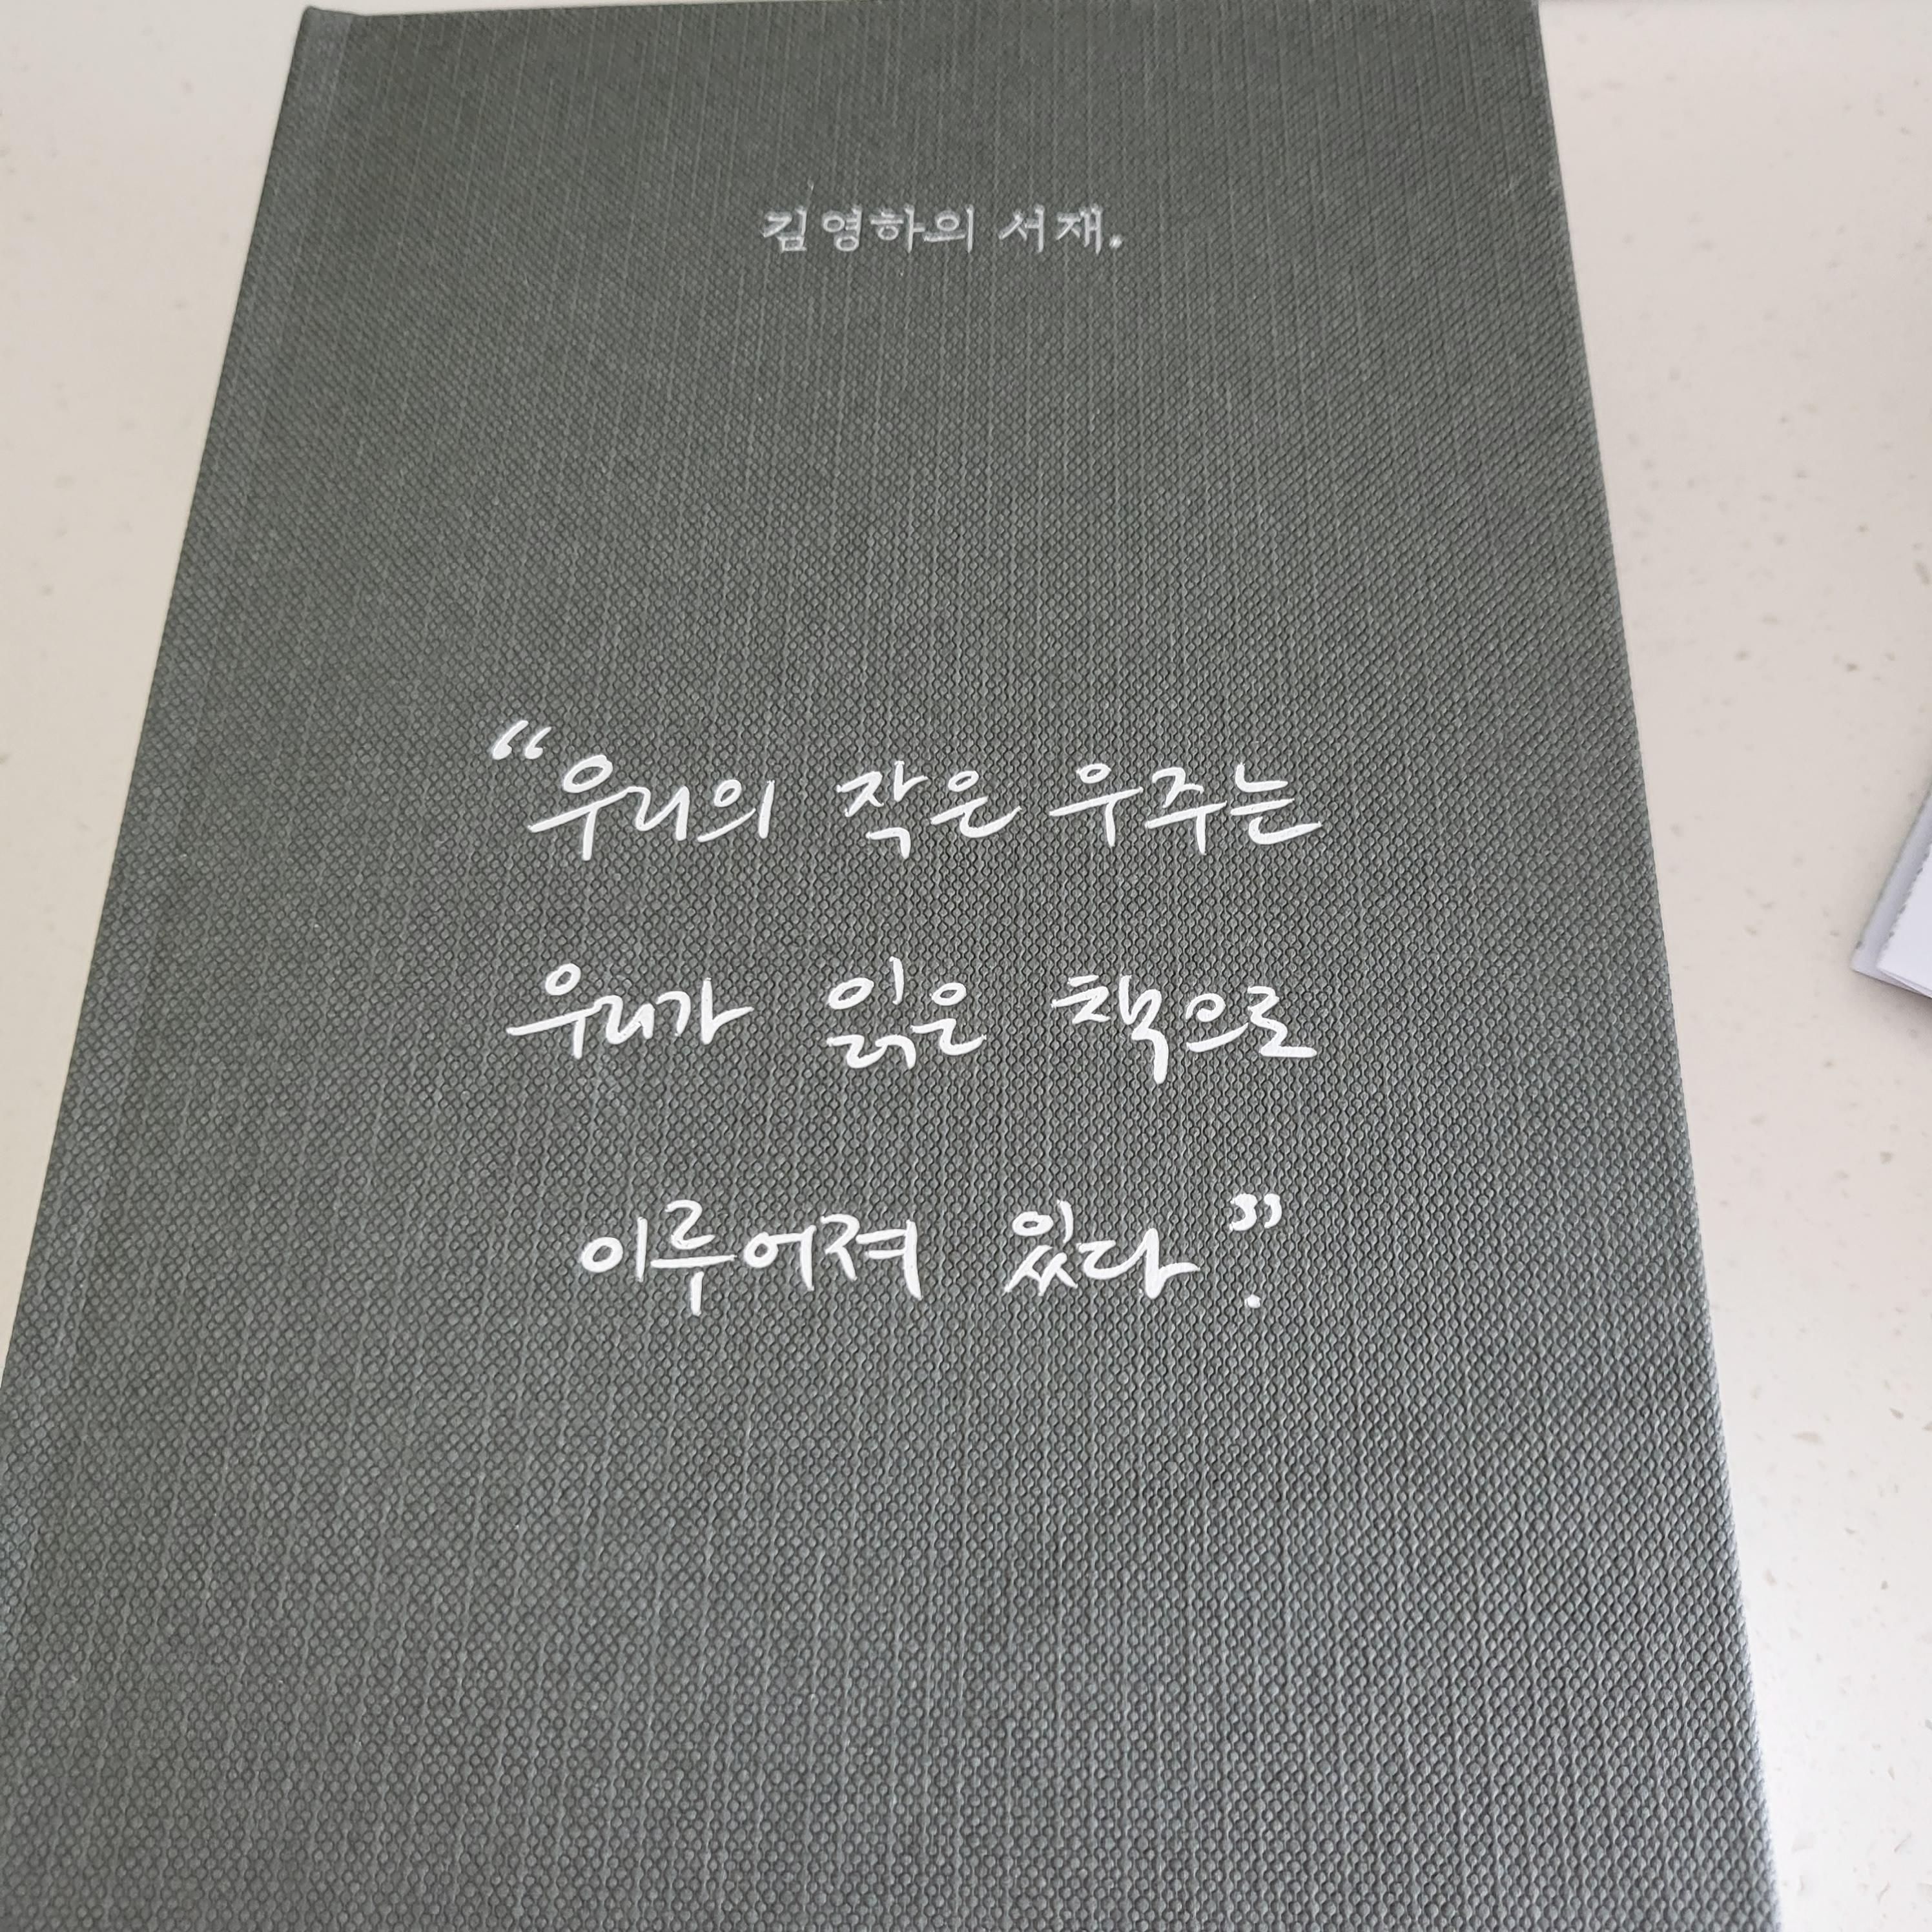 김영하의 서재.
“우리의 작은 우주는
우리가 읽은 책으로
이루어져 있다.”